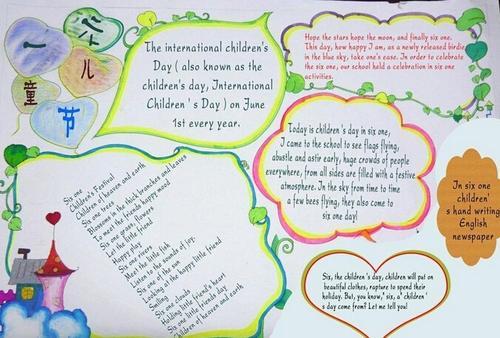 六
一
儿
童
节
The international children's
Day ( also known as the
children's day, International
Children ' s Day ) on June
1st every year.
Hope the stars hope the moon, and finally six one.
This day, how happy I am, as a newly released birdie
in the blue sky, take one's ease. In order to celebrate
the six one, our school held a celebration in six one
activities.
Today is children's day in six one,
I came to the school to see flags flying,
abustle and astir early, huge crowds of people
everywhere, from all sides are filled with a festive
atmosphere. In the sky from time to time
a few bees flying, they also come to
six one day!
Six one
Children's Festival
Children of heaven and earth
Six one trees
Blossoms in the thick branches and leaves
To meet the friends happy mood
Six one grass, flowers
Let the little friend
Happy play
Six one rivers
Meet the little fish
Listen to the sounds of joy
Six one of the sun
Looking at the happy little friend
Smiling
Six one clouds
Holding little friend's heart
Six one holiday little friends day
Children of heaven and earth
In six one
children'
s hand writing
English
newspaper
Six, the children's day, children will put on
beautiful clothes, rapture to spend their
holiday. But, you know," six, a" children' s
's day come from? Let me tell you!